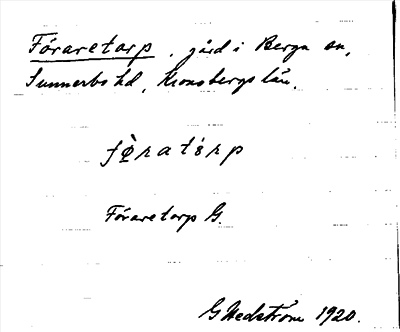 Föraretorp, gård i Berga sn,
Sunnerbo hd, Kronobergs län.
fø̀ratɷrp
Föraretorps G.
G Hedström 1920.